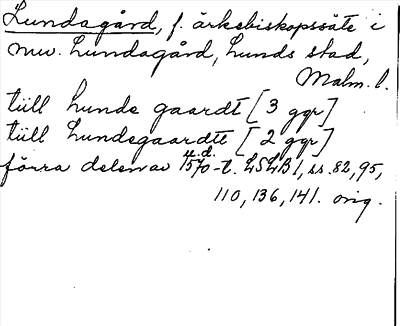 Lundagård, f. ärkebiskopssäte i
nuv. Lundagård, Lunds stad,
Malm. l.
tüll hunde gaardt [3 ggr]
tüll Lundegaardtt [2 ggr]
u.d.
förra delen av 1570-t. LSLB 1, ss. 82, 95,
110, 136, 141. orig.